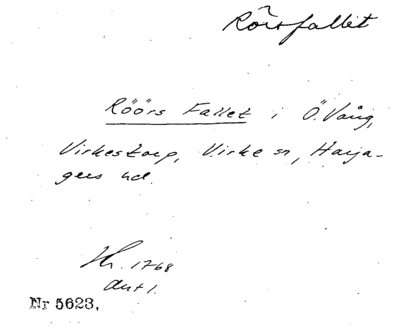 Rörsfallet
Röörs Fallet i Ö. Vång,
Virkestorp, Virke sn, Harja-
gers hd.
Hr. 1768
Akt 1.
Nr 5623,